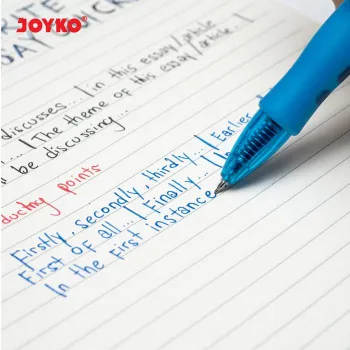 JOYKO
discusses... | in this essay/article
... | The theme of this essay / article
be discussing...
points
Firstly, secondly, thirdly... | Earlier
First of all... | Finally... |
In the first instance